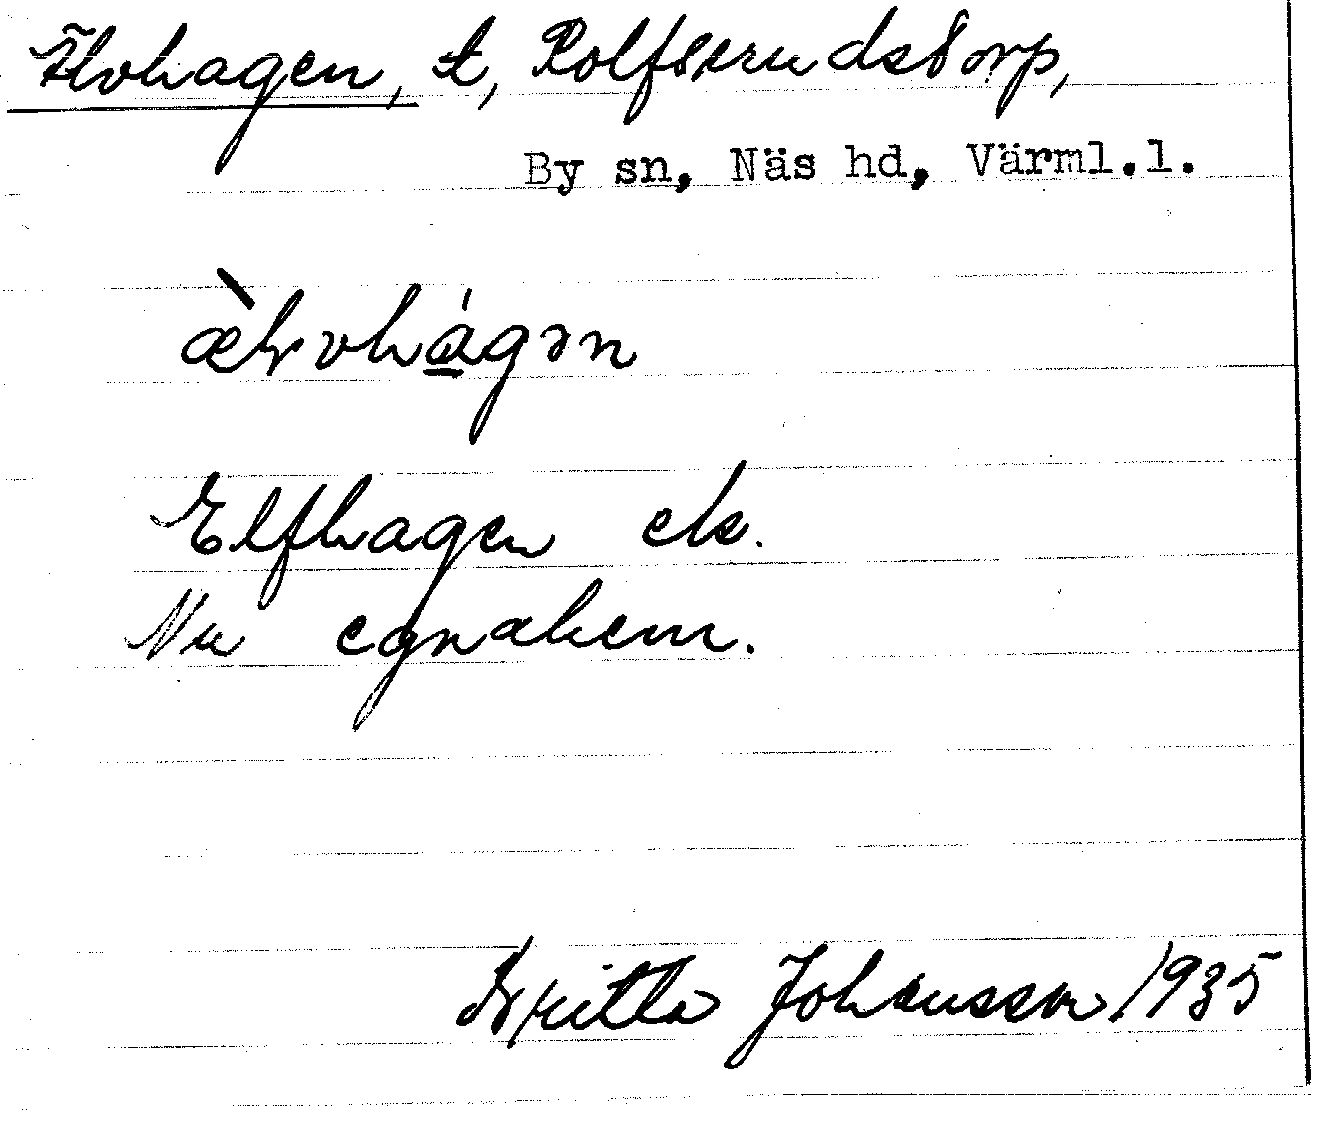 Älvhagen, t, Rolfserudstorp,
By sn, Näs hd, Värml.l.
æ̀lvhágən
Elfhagen ek.
Nu egnahem.
Britta Johansson 1935